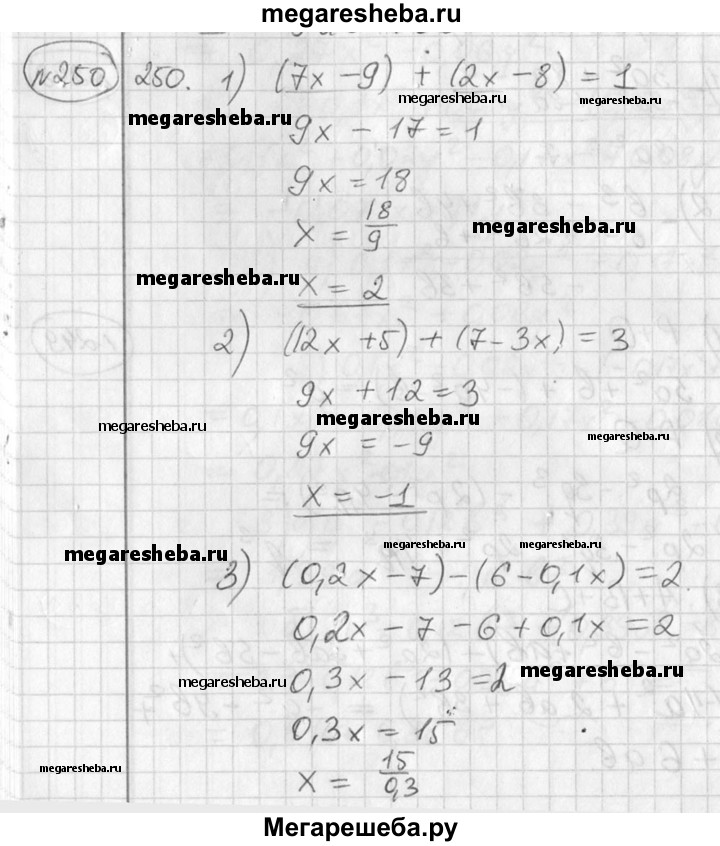 megaresheba.ru
№250 250. 1) (7x - 9) + (2x - 8) = 1
megaresheba.ru megaresheba.ru
megaresheba.ru 9x - 17 = 1
9x = 18
x = 18/9 megaresheba.ru
megaresheba.ru x = 2
2) (12x + 5) + (7 - 3x) = 3
9x + 12 = 3
megaresheba.ru megaresheba.ru megaresheba.ru
9x = -9
x = -1
megaresheba.ru megaresheba.ru megaresheba.ru
3) (0,2x - 7) - (6 - 0,1x) = 2
0,2x - 7 - 6 + 0,1x = 2
megaresheba.ru 0,3x - 13 = 2 megaresheba.ru
0,3x = 15
megaresheba.ru x = 15/0,3
Мегарешеба.ру